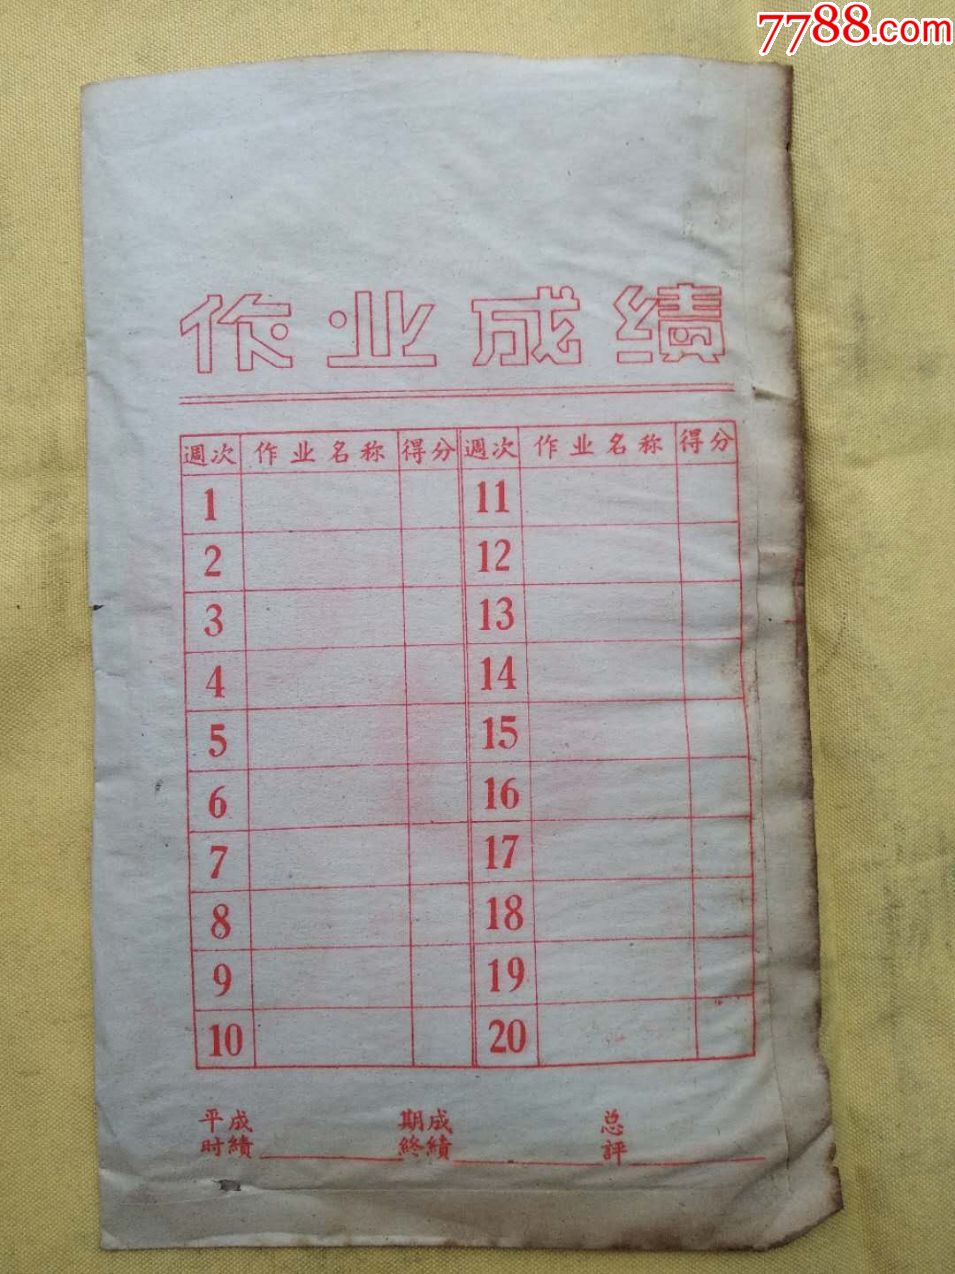 7788.com
作业成績
週次 作业名称 得分 週次 作业名称 得分
1 11
2 12
3 13
4 14
5 15
6 16
7 17
8 18
9 19
10 20
平时成績 期終成績 总評